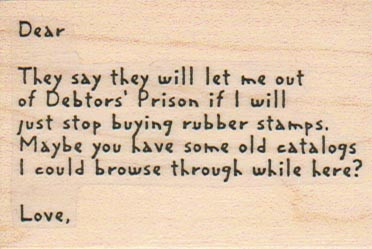 Dear
They say they will let me out
of Debtors' Prison if I will
just stop buying rubber stamps.
Maybe you have some old catalogs
I could browse through while here?
Love,